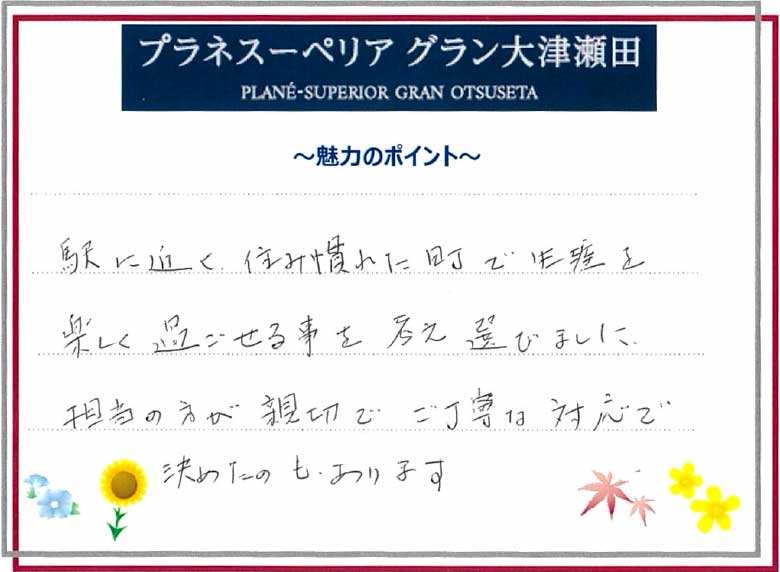 プラネスーペリア グラン大津瀬田
PLANÉ-SUPERIOR GRAN OTSUSETA
～魅力のポイント～
駅に近く、住み慣れた町で生涯を
楽しく過ごせる事を考え選びました。
担当の方が親切でご丁寧な対応で
決めたのもあります